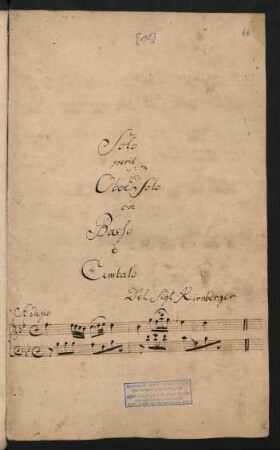 66
Solo
per il
Oboe Solo
con
Basso
e
Cembalo
Del Sigl. Kirnberger.
Adagio